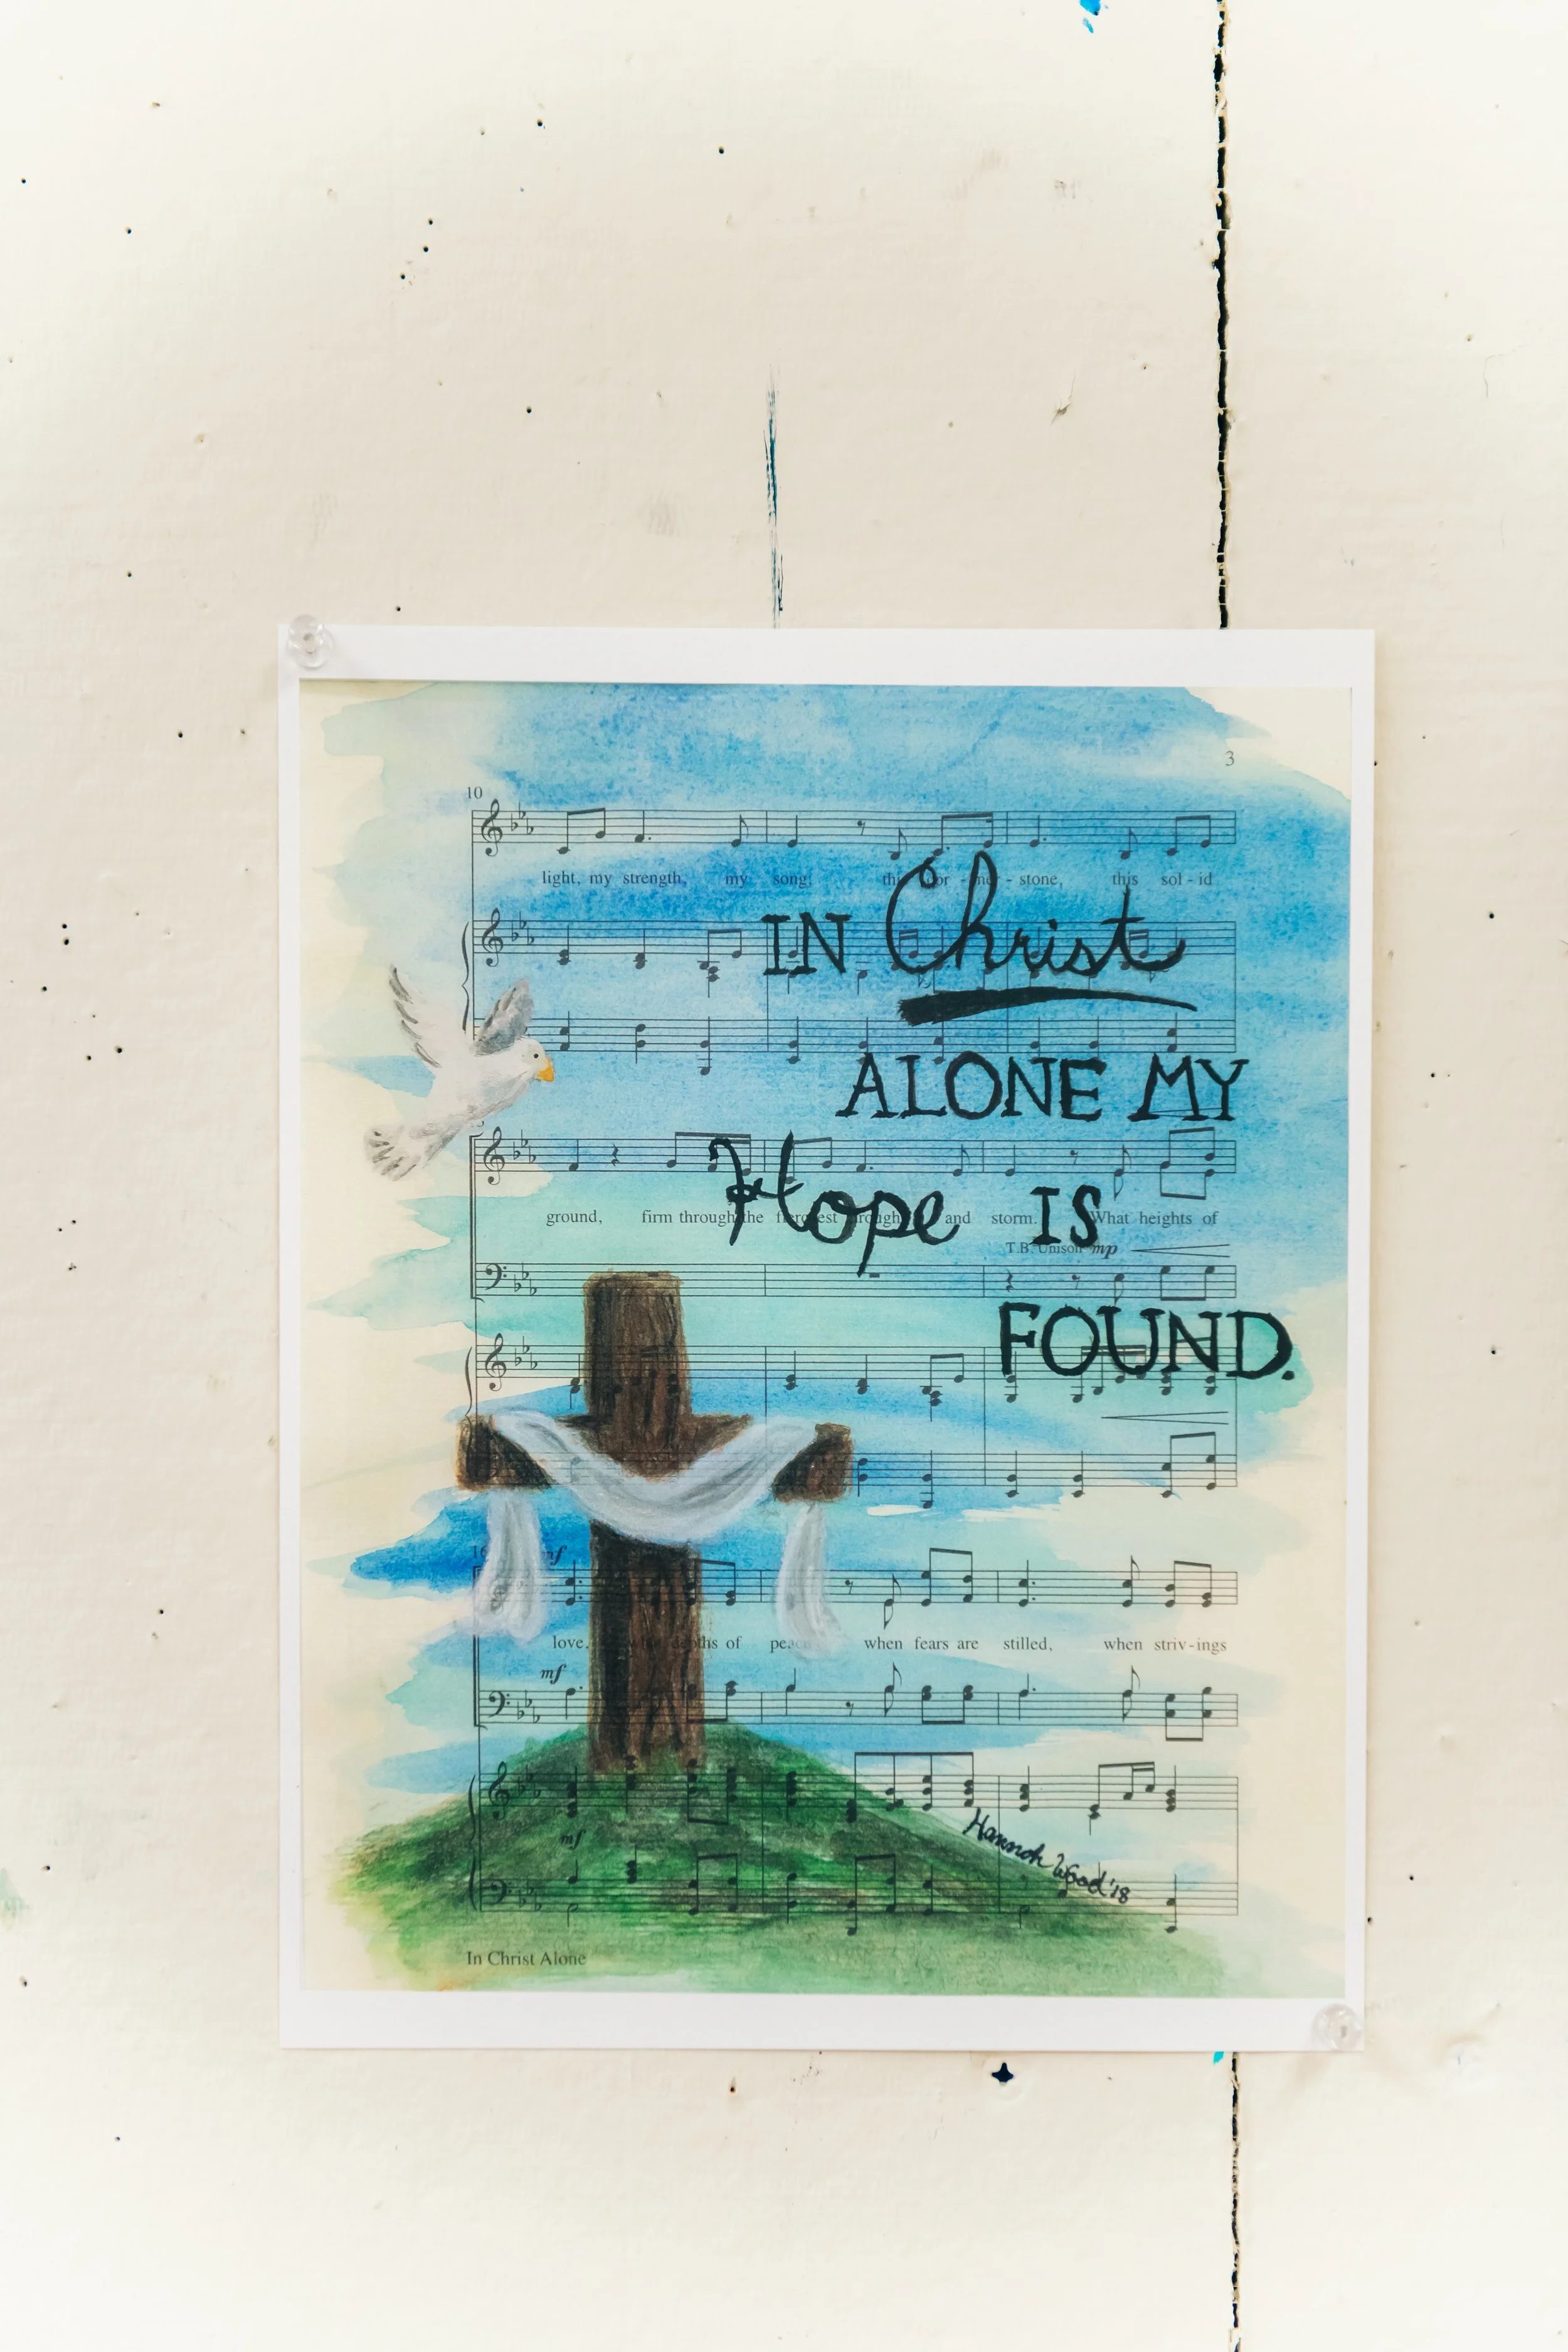 3
10
light, my strength, my song; this cor - ner - stone, this sol - id
IN Christ
ALONE MY
Hope IS
ground, firm through the fiercest drought and storm. What heights of
T.B. Unison mp
FOUND.
16 mf
love, what depths of peace, when fears are stilled, when striv - ings
mf
mf
Hannah Wood '18
In Christ Alone